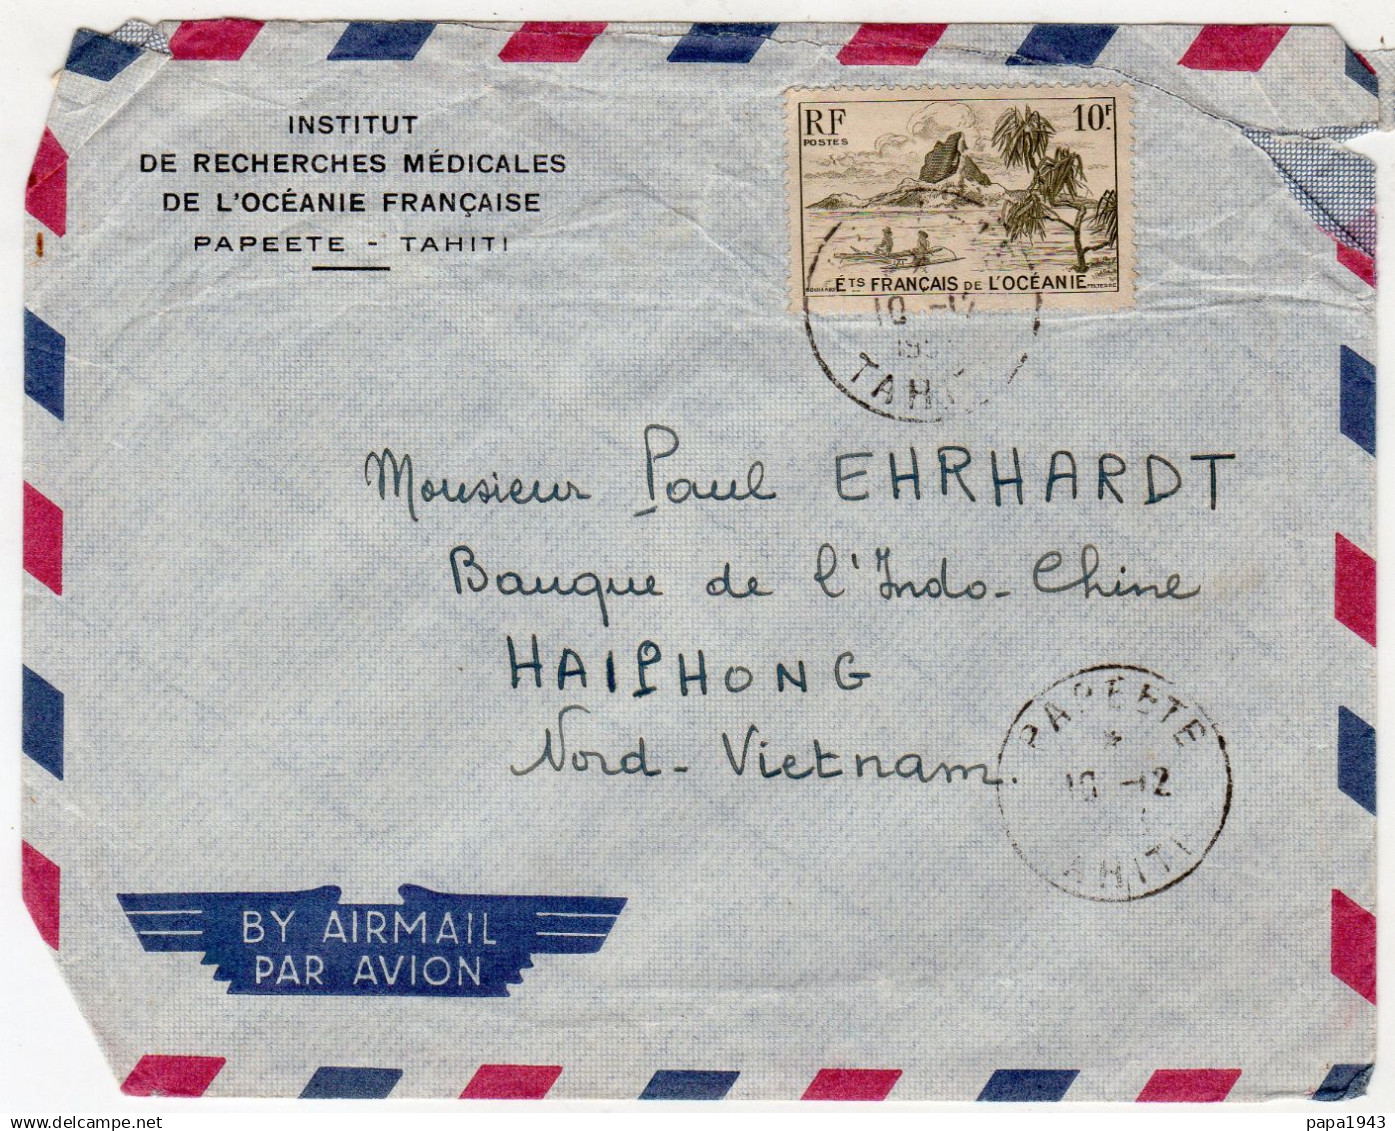 INSTITUT
DE RECHERCHES MÉDICALES
DE L'OCÉANIE FRANÇAISE
PAPEETE - TAHITI
RF
POSTES
10F.
ÉTS FRANÇAIS DE L'OCÉANIE
10 -12
TAHI
Monsieur Paul EHRHARDT
Banque de l'Indo-Chine
HAIPHONG
Nord-Vietnam.
PAPEETE
10 -12
AHITI
BY AIRMAIL
PAR AVION
papa1943